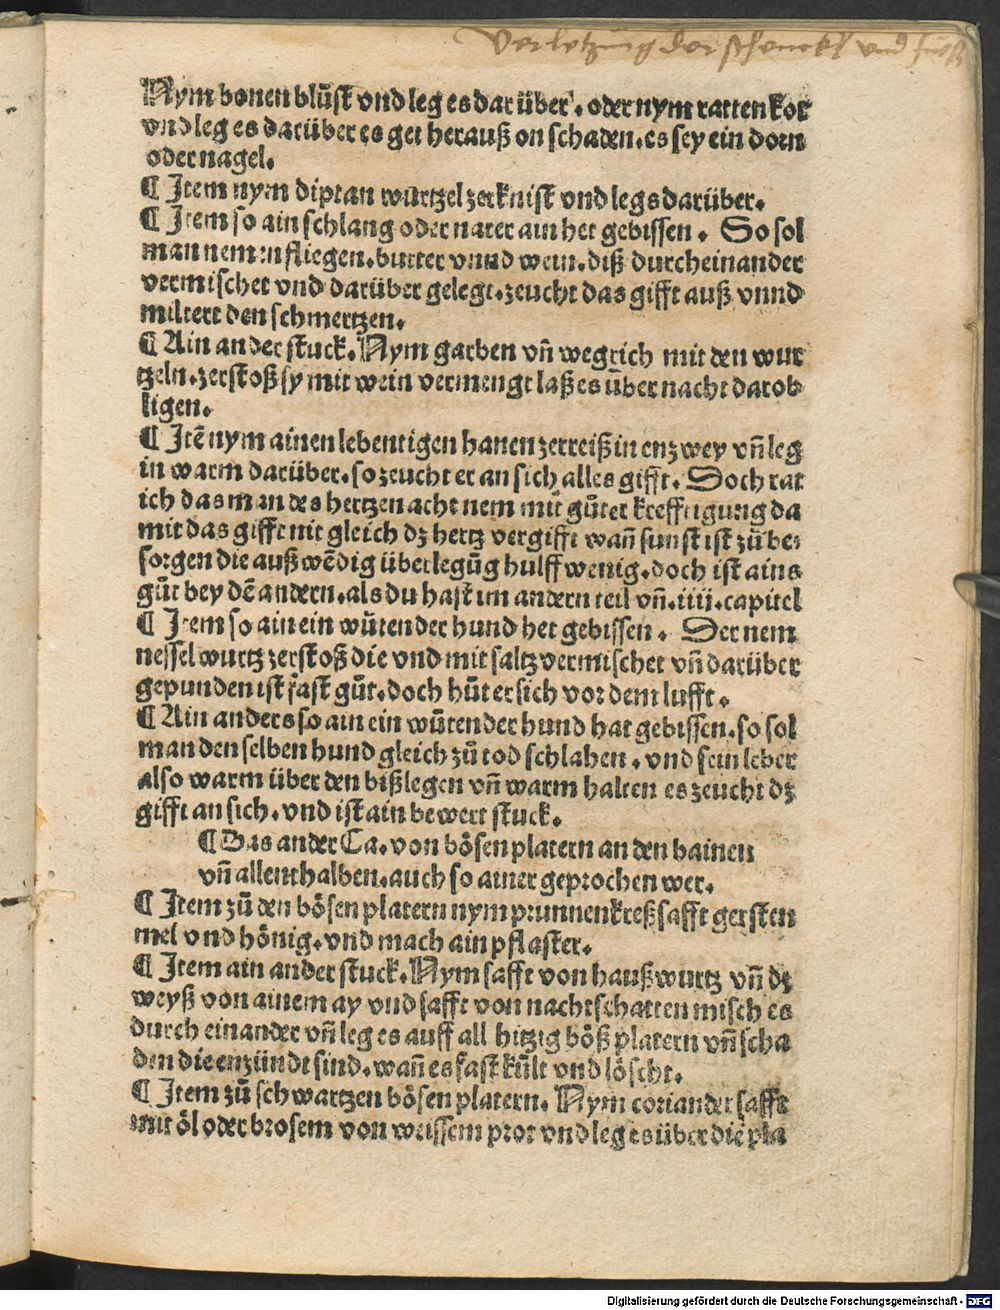 Verletzung der schenckl und fueß
Nym bonen blůst vnd leg es darüber. oder nym ratten kot
vnd leg es darüber es get herauß on schaden. es sey ein dorn
oder nagel.
¶ Item nym diptan wurtzel zerknist vnd legs darüber.
¶ Item so ain schlang oder nater ain het gebissen. So sol
man nemen fliegen. butter vnnd wein. diß durcheinander
vermischet vnd darüber gelegt. zeucht das gifft auß vnnd
miltert den schmertzen.
¶ Ain ander stuck. Nym garben vñ wegrich mit den wur
tzeln. zerstoß sy mit wein vermengt laß es über nacht darob
ligen.
¶ Itẽ nym ainen lebentigen hanen zerreiß in enzwey vñ leg
in warm darüber. so zeucht er an sich alles gifft. Doch rat
ich das man des hertzen acht nem mit gůter krefftigung da
mit das gifft nit gleich dz hertz vergifft wañ sunst ist zů be
sorgen die außwẽdig überlegũg hulff wenig. doch ist ains
gůt bey dẽ andern. als du hast im andern teil vñ. iiii. capitel
¶ Item so ain ein wůtender hund het gebissen. Der nem
nessel wurtz zerstoß die vnd mit saltz vermischet vñ darüber
gepunden ist fast gůt. doch hůt er sich vor dem lufft.
¶ Ain anders so ain ein wůtender hund hat gebissen. so sol
man den selben hund gleich zů tod schlahen. vnd sein leber
also warm über den biß legen vñ warm halten es zeucht dz
gifft an sich. vnd ist ain bewert stuck.
¶ Das ander Ca. von bösen platern an den bainen
vñ allenthalben. auch so ainer geprochen wer.
¶ Item zů den bösen platern nym prunnenkreß safft gersten
mel vnd hönig. vnd mach ain pflaster.
¶ Item ain ander stuck. Nym safft von haußwurtz vñ dz
weyß von ainem ay vnd safft von nachtschatten misch es
durch einander vñ leg es auff all hitzig böß platern vñ scha
den die enzündt sind. wañ es fast kůlt vnd löscht.
¶ Item zů schwartzen bösen platern. Nym coriander safft
mit öl oder brosem von weissem prot vnd leg es über die pla
Digitalisierung gefördert durch die Deutsche Forschungsgemeinschaft - DFG